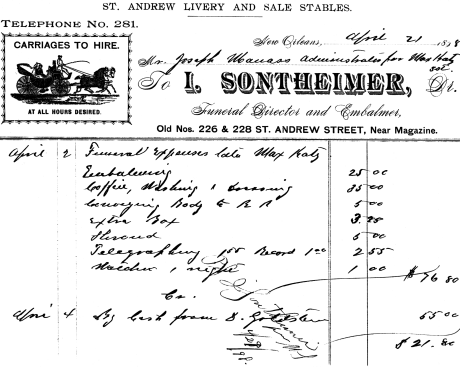 ST. ANDREW LIVERY AND SALE STABLES.
TELEPHONE NO. 281.
CARRIAGES TO HIRE.
AT ALL HOURS DESIRED.
New Orleans, April 21 1898
Mr. Joseph Manass administrator for Max Katz
To I. SONTHEIMER, Dr.
Funeral Director and Embalmer,
Old Nos. 226 & 228 ST. ANDREW STREET, Near Magazine.
April 2 Funeral Expenses late Max Katz
Embalming 25 00
Coffin, Washing & Dressing 35 00
Conveying Body to R R 5 00
Extra Box 3.25
Shroud 5 00
Telegraphing 1.55 Record 1.00 2 55
Watcher 1 night 1 00 $76 80
Cr.
April 4 By Cash from S. Goldstein 55 00
$21.80